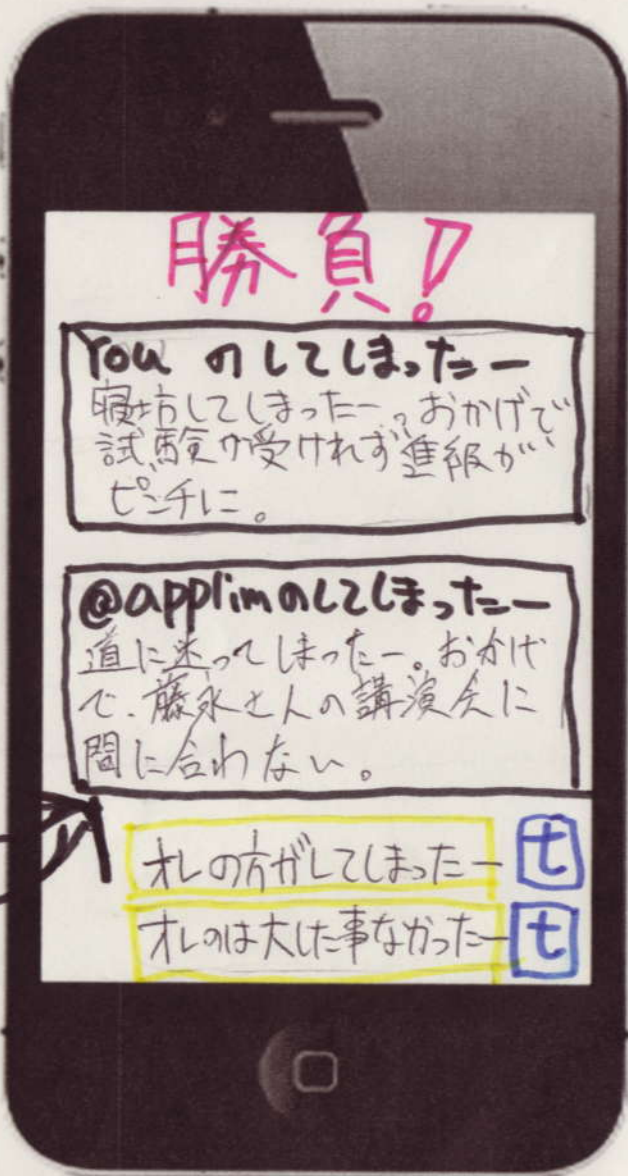 勝負!
You のしてしまったー
寝坊してしまったー。おかげで
試験が受けれず進級が
ピンチに。
@applimのしてしまったー
道に迷ってしまったー。おかげ
で、藤永さんの講演会に
間に合わない。
オレの方がしてしまったー t
オレのは大した事なかったー t